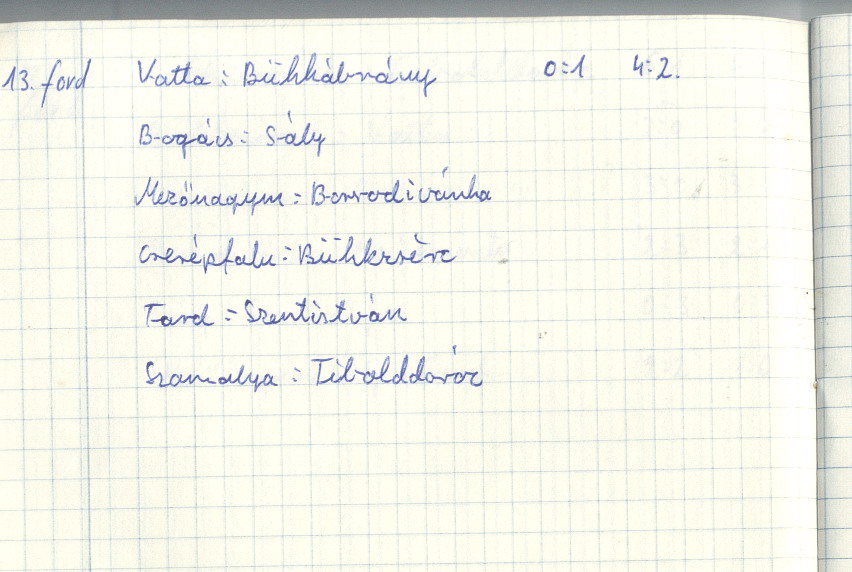 13. ford Vatta : Bükkábrány 0:1 4:2.
Bogács : Sály
Mezőnagym : Borsodivánka
Cserépfalu : Bükkzsérc
Tard = Szentistván
Szomolya : Tibolddaróc